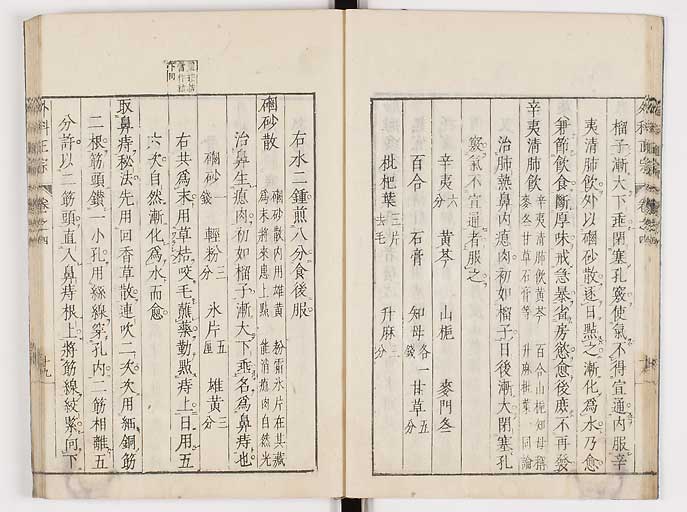 榴子漸大下垂閉塞孔竅使氣不得宣通內服辛
夷清肺飲外以硇砂散逐日點之漸化為水乃愈
兼節飲食斷厚味戒急暴省房慾愈後庶不再發
辛夷清肺飲
辛夷清肺飲黃芩 百合山梔知母
麥冬甘草石膏等 升麻枇葉同
治肺熱鼻內瘜肉初如榴子日後漸大閉塞孔
竅氣不宣通者服之
辛夷六分 黃芩 山梔 麥門冬
百合 石膏 知母各一錢 甘草五分
枇杷葉三片去毛 升麻三分
右水二鍾煎八分食後服
硇砂散
硇砂散內用雄黃 粉霜冰片在其藏
為末將來患上點 能消瘜肉自然光
治鼻生瘜肉初如榴子漸大下垂名為鼻痔也
硇砂一錢 輕粉三分 氷片五厘 雄黃三分
右共為末用草桔咬毛蘸藥勤點痔上日用五
六次自然漸化為水而愈
取鼻痔秘法先用回香草散連吹二次次用細銅筯
二根筯頭鑽一小孔用絲線穿孔內二筯相離五
分許以二筯頭直入鼻痔根上將筯線絞緊向下
外科正宗 卷之四